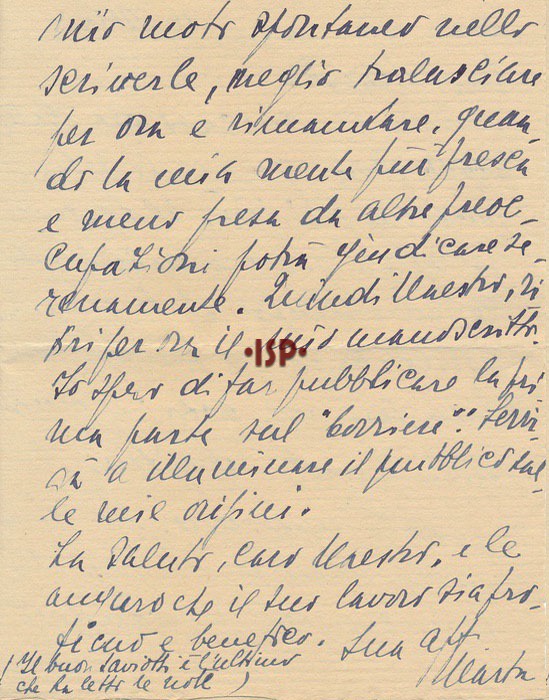 mio moto spontaneo nello
scriverle, meglio tralasciare
per ora e rimandare, quan-
do la mia mente più fresca
e meno presa da altre preoc-
cupazioni potrà giudicare se-
renamente. Quindi Maestro, ri-
tiri per ora il mio manoscritto.
·ISP·
Io spero di far pubblicare la pri
ma parte sul "Corriere". Servi-
rà a illuminare il pubblico sul-
le mie origini.
La saluto, caro Maestro, e le
auguro che il suo lavoro sia pro-
ficuo e benefico. Sua aff.
Marta
(Il buon Saviotti è l'ultimo
che ha letto le note)